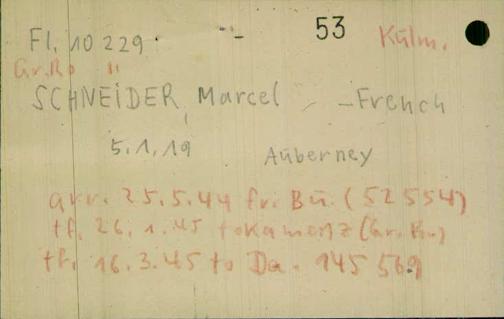 Fl. 10229 53 Külm.
Gr.Ro "
SCHNEIDER, Marcel - French
5.1.19 Auberney
arr. 25.5.44 fr. Bu. (52554)
tf. 26.1.45 to Kamenz (Gr. Ro.)
tf. 16.3.45 to Da. 145569